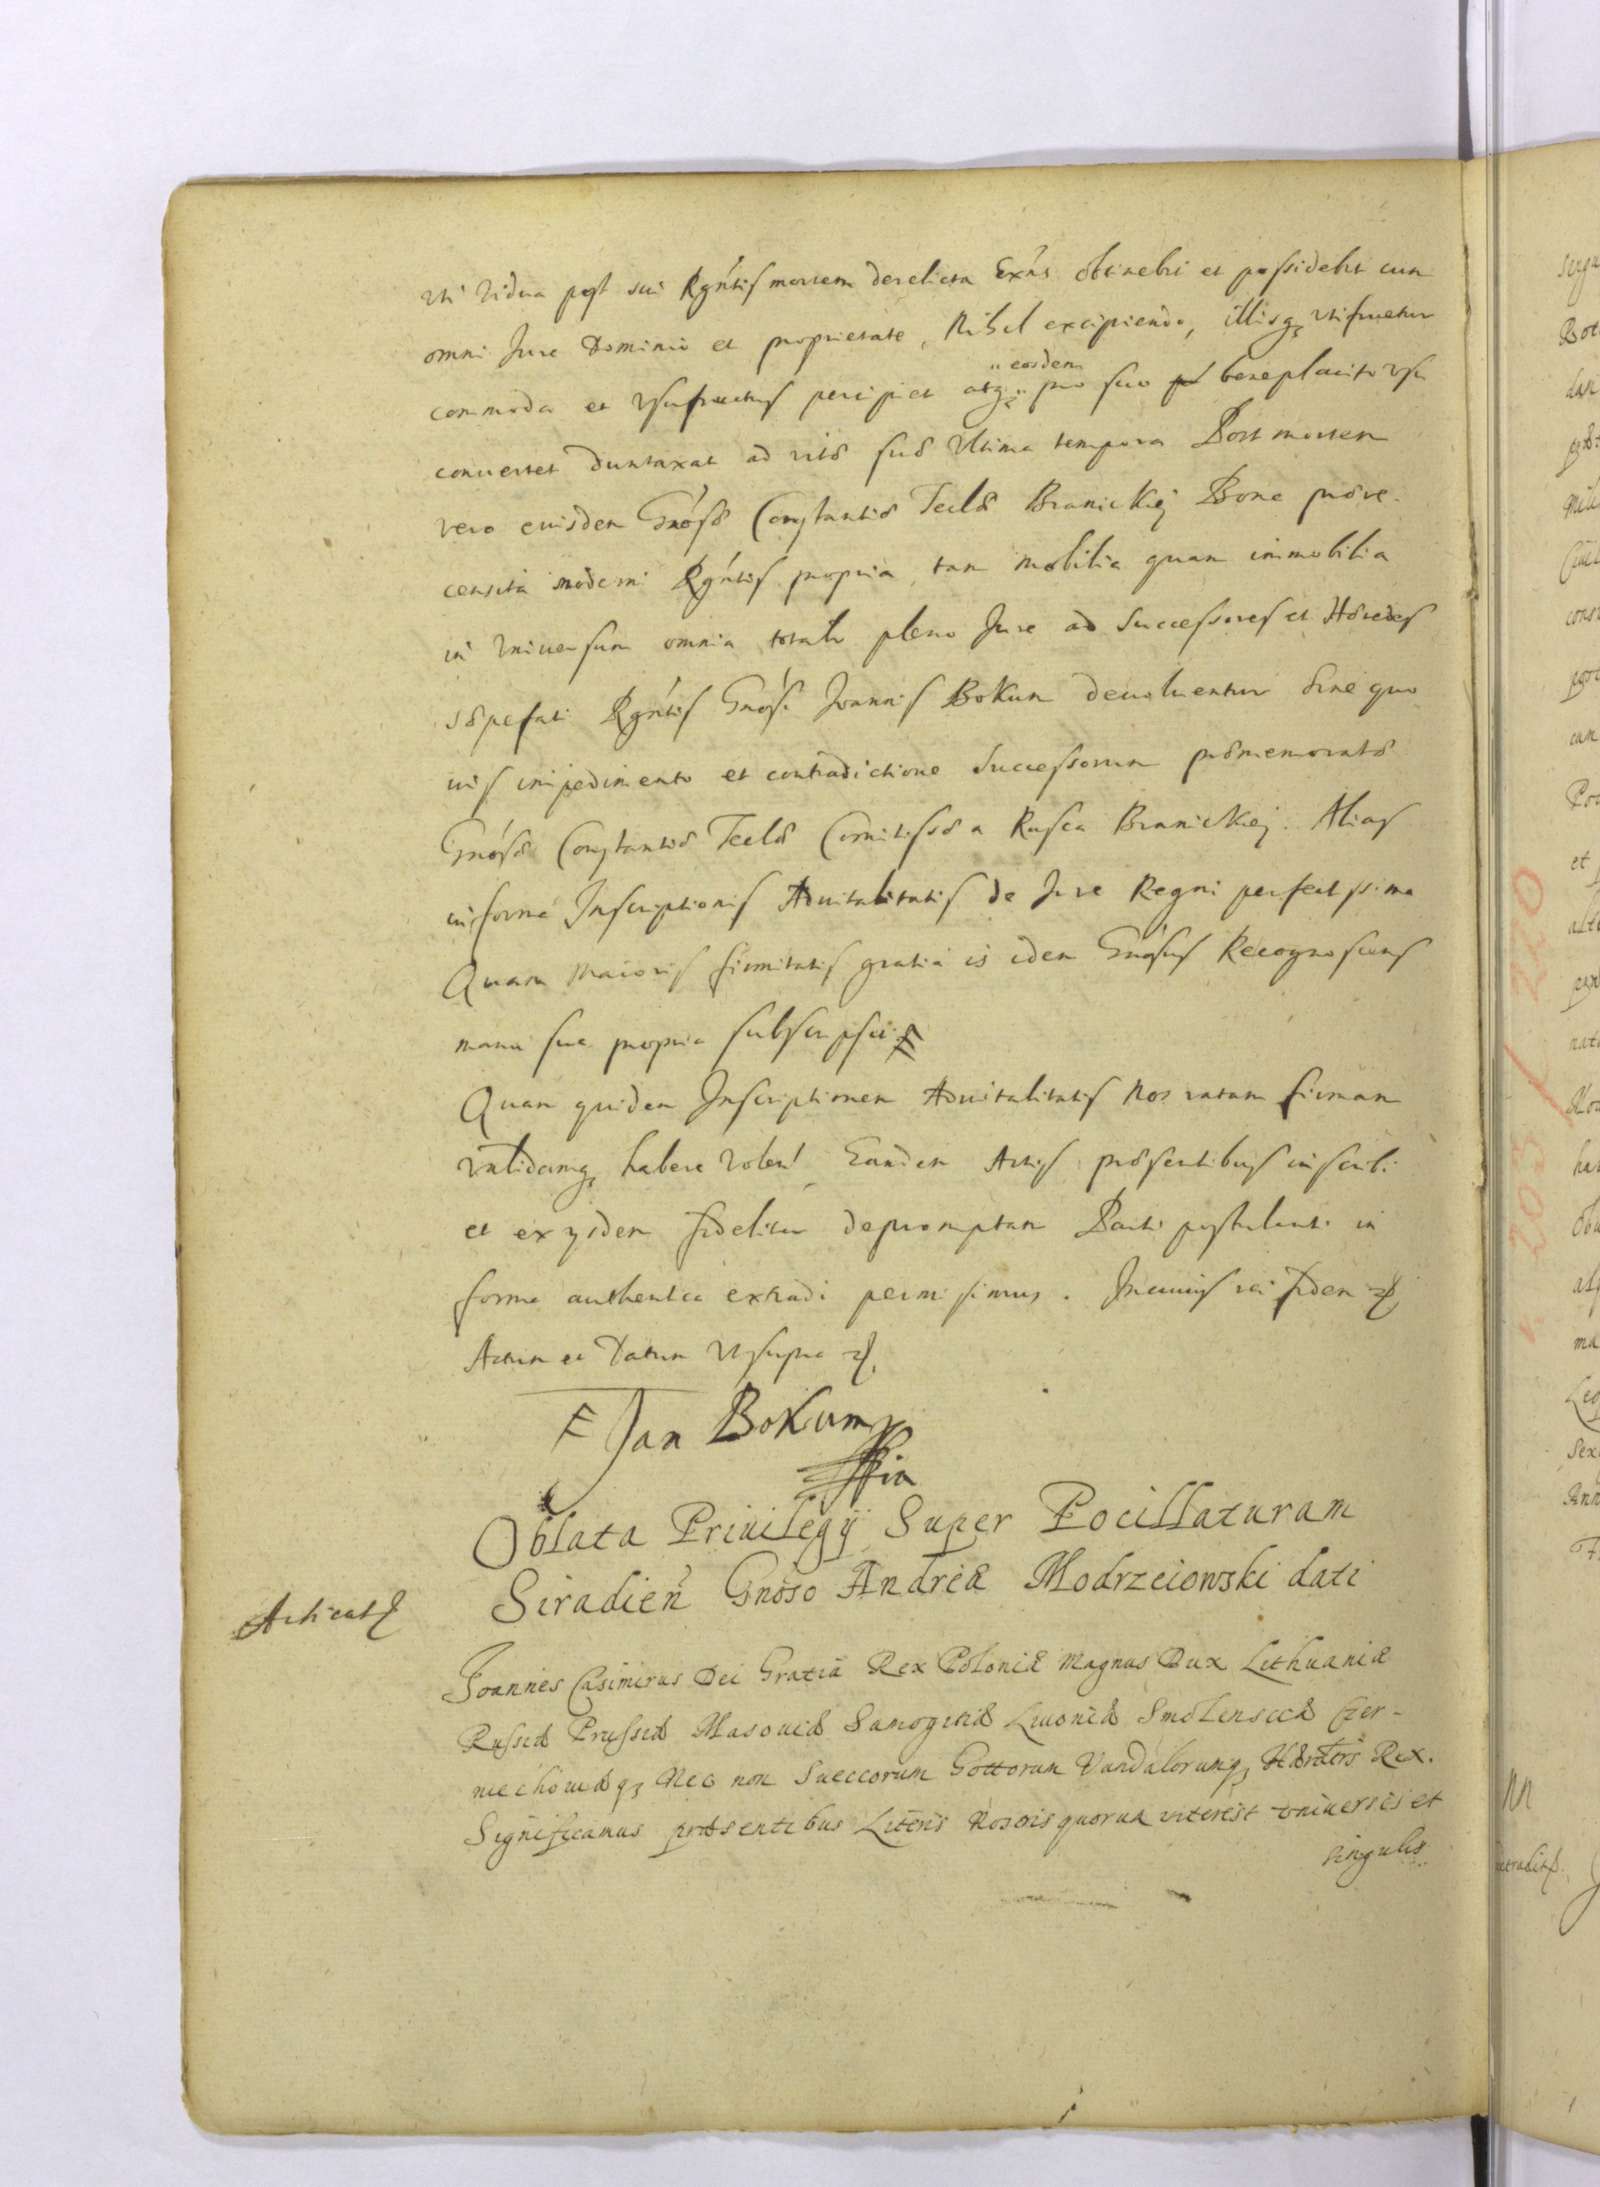 uti Vidua post sui Rgńtis mortem derelicta Exńs obtinebit et possidebit cum
omni Jure Dominio et proprietate, Nihil excipiendo, illisq3 utifruetur
commoda et usufructus percipiet atq3 eosdem pro suo beneplacito usu
convertet duntaxat ad vitæ suæ ultima tempora Post mortem
vero eiusdem Gnósæ Constantiæ Teclæ Branickiej Bona prære-
censita moderni Rgńtis propria, tam mobilia quam immobilia
in Universum omnia totali pleno Jure ad Successores et Hæredes
sæpefati Rgńtis Gnósi Joannis Bokum devoluentur Sine quo
vis impedimento et contradictione Successorum præmemoratæ
Gnósæ Constantiæ Teclæ Comitissæ a Rusca Branickiej. Alias
in forma Inscriptionis Aduitalitatis de Jure Regni perfectissima
Quam Maioris firmitatis gratia is idem Gnósus Recognoscens
manu sua propria subscripsit
Quam quidem Inscriptionem Aduitalitatis Nos ratam firmam
validamq3 habere volen' Eandem Actis præsentibus inscribi
et ex ijsdem fideliter depromptam Parti postulanti in
forma authentica extradi permisimus. In cuius rei fidem
Actum et Datum Ut supra
Jan Bokum
Oblata Priuilegij Super Pocillaturam
Siradień Gnóso Andreæ Modrzeiowski dati
Joannes Casimirus Dei Gratia Rex Poloniæ Magnus Dux Lithuaniæ
Russiæ Prussiæ Masouiæ Samogitiæ Liuoniæ Smolensciæ Czer-
niechouiæq3 Nec non Sueccorum Gottorum Vandalorumq3 Hæredits Rex.
Significamus præsentibus Literis Nostris quorum interest vniuersis et
singulis